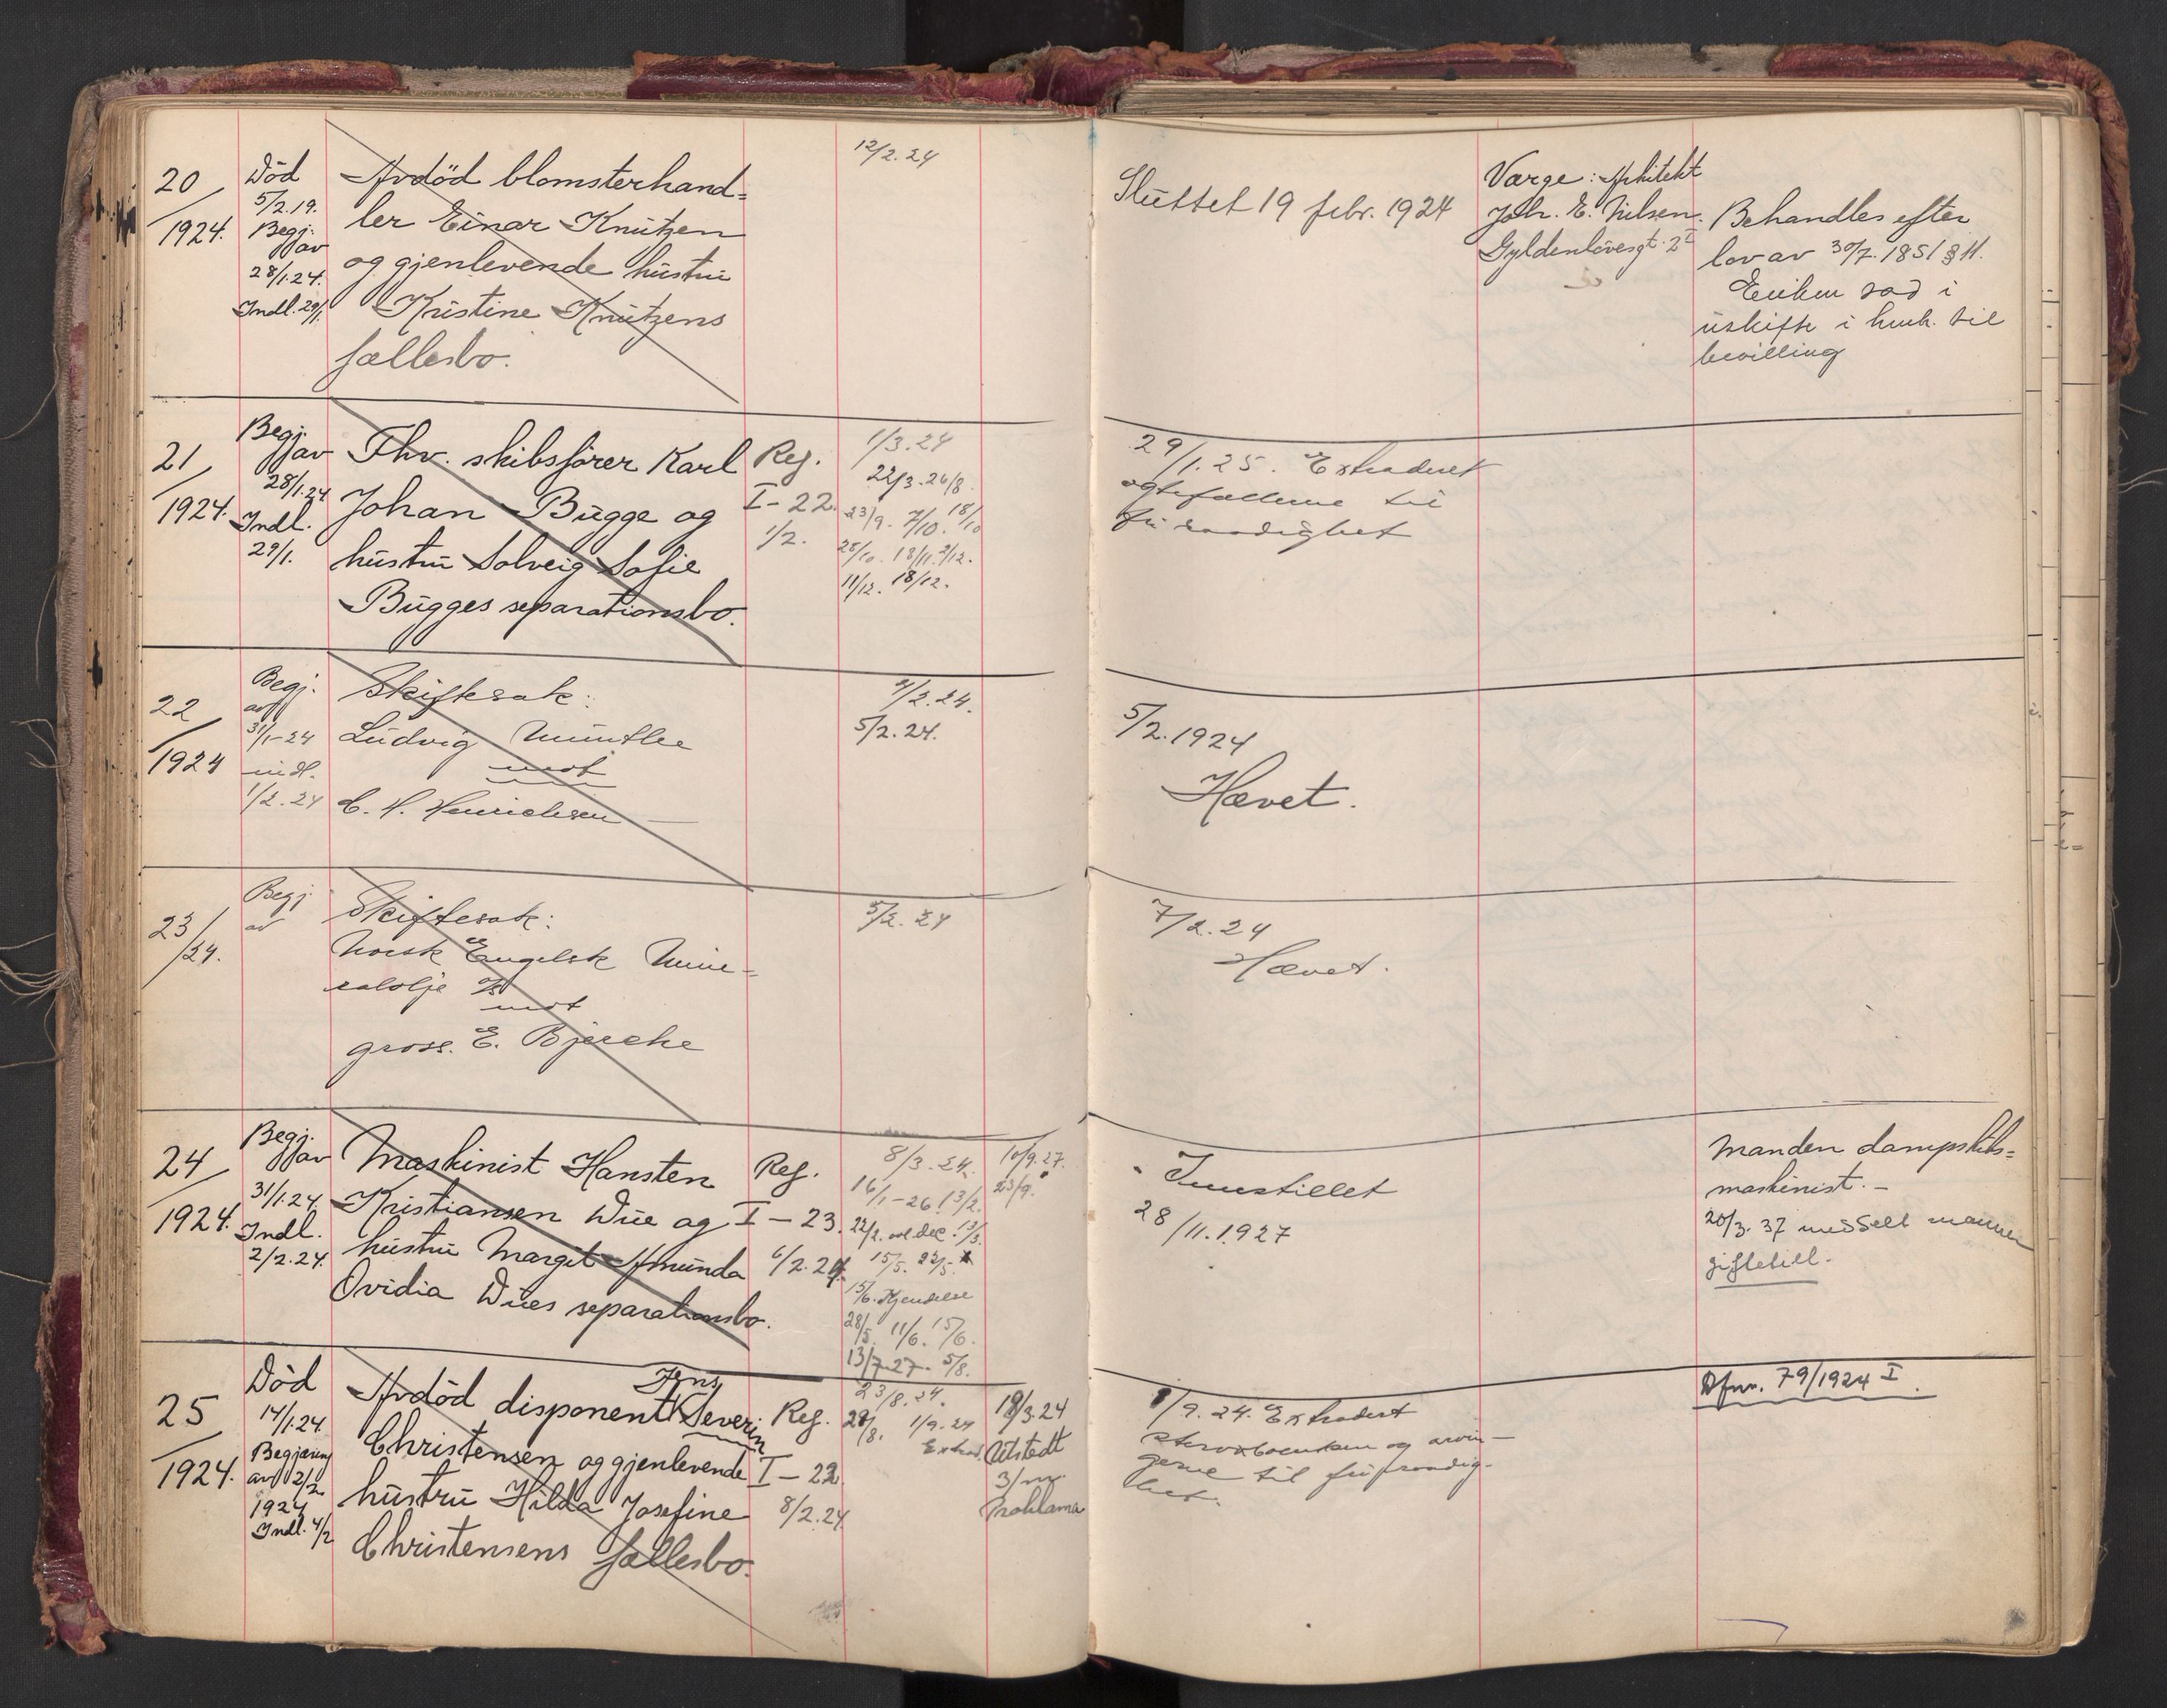 20/1924.
Död
5/2.19.
Begj.
av
28/1.24.
Indl. 29/1.
Avdöd blomsterhand=
ler Einar Knutzen
og gjenlevende hustru
Kristine Knutzens
fællesbo.
12/2.24
Sluttet 19 febr. 1924
Værge: Arkitekt
Joh. E. Nilsen.
Gyldenlövesgt. 2 I
Behandles efter
lov av 30/7.1851 § 11.
Enken sad i
uskifte i henh. til
bevilling
21/1924.
Begj.
av
28/1.24
Indl.
29/1.
Fhv. skibsförer Karl
Johan Bugge og
hustru Solveig Sofie
Bugges separationsbo.
Reg.
I - 22.
1/2.
1/3.24
22/3. 26/8.
23/9. 7/10. 18/10
28/10. 18/11. 2/12.
11/12. 18/12.
29/1.25. Extraderet
egtefællerne til
fri raadighet
22/1924
Begj.
av
31/1-24
indl.
1/2.24
Skiftesak:
Ludvig Munthe
mot
C. H. Henrichsen
4/2.24.
5/2.24.
5/2.1924
Hævet.
23/24.
Begj
av
Skiftesak:
Norsk Engelsk Mine-
ralolje A/S
mot
gross. E. Bjercke
5/2.24
7/2.24
Hævet.
24/1924.
Begj.
av
31/1.24.
Indl.
2/2.24.
Maskinist Hansten
Kristiansen Due og
hustru Margit Amunda
Ovidia Dues separationsbo.
Reg.
I - 23.
6/2.24.
8/3.24.
16/1-26. 13/2.
22/2. 13/3.
15/5. 22/5.
15/6. Kjendelse
28/5. 11/6. 15/6.
13/7.27. 5/8.
10/9.27.
23/9.
Innstillet
28/11.1927
Manden dampskibs=
maskinist. -
20/3.37 meddelt mannen
giftetill.
25/1924.
Död
14/1.24.
Begjæring
av 2/2
1924
Indl. 4/2
Avdöd disponent Jens Severin
Christensen og gjenlevende
hustru Hilda Josefine
Christensens fællesbo.
Reg.
I - 22.
8/2.24.
23/8.24.
28/8. 1/9.24
Extrad.
18/3.24
Utstedt
3/mr.
Proklama
1/9.24. Extradert
stervboenken og arvin-
gerne til fri raadig-
het.
Dfnr. 79/1924 I.